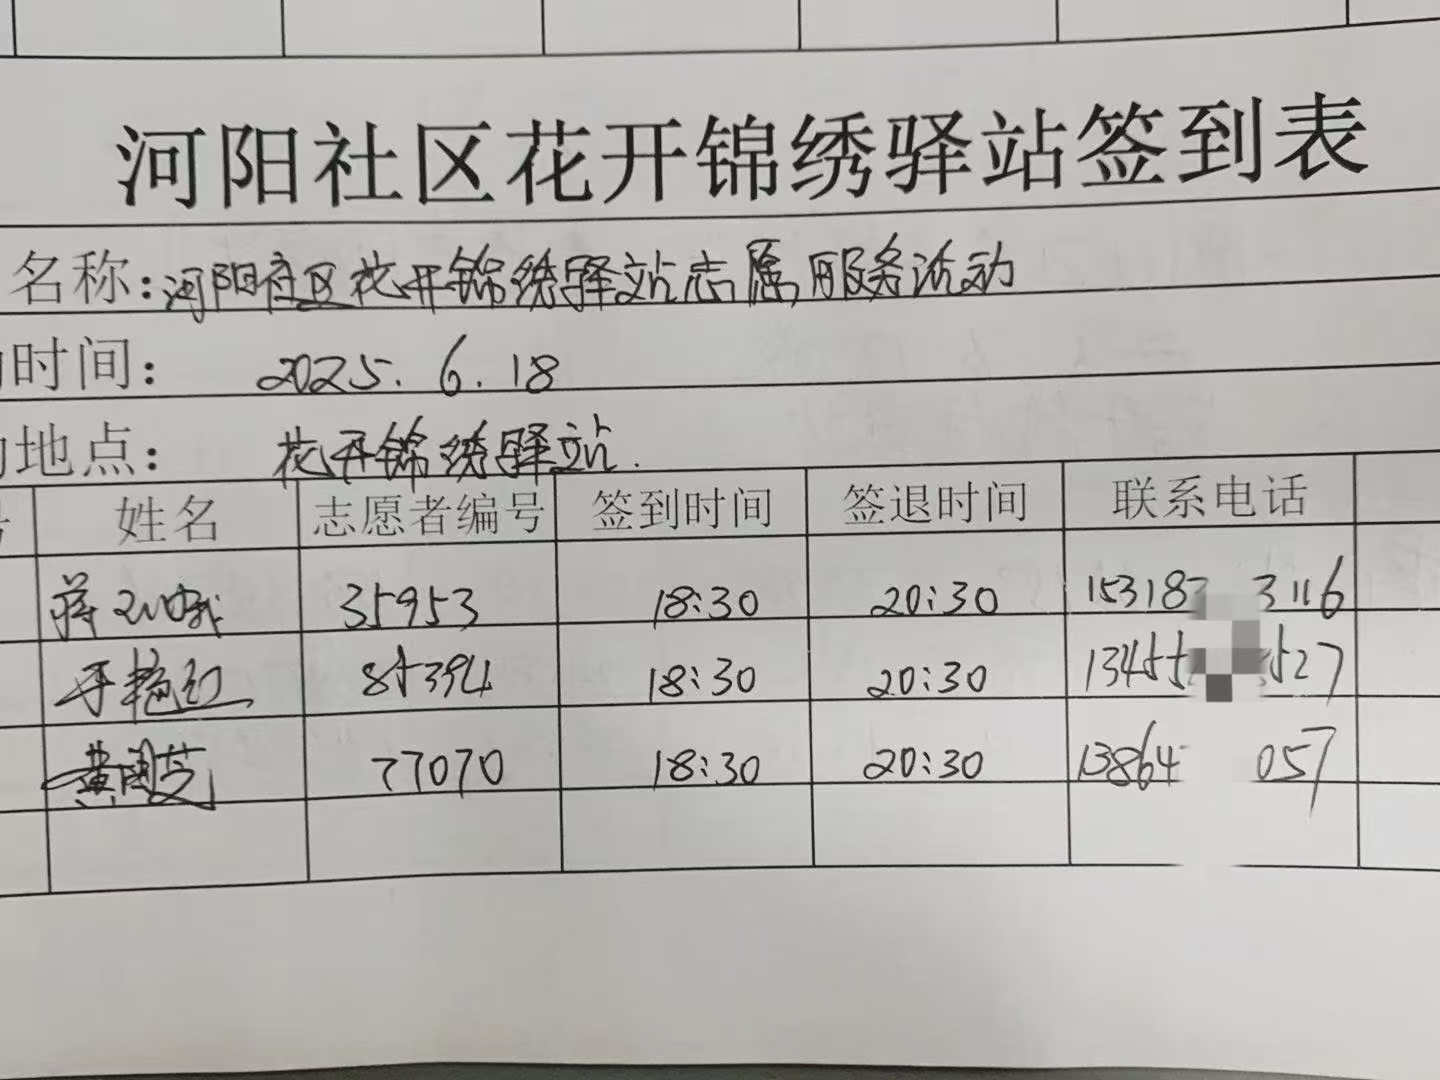 河阳社区花开锦绣驿站签到表
名称：河阳社区花开锦绣驿站志愿服务活动
时间： 2025.6.18
地点： 花开锦绣驿站.
姓名 志愿者编号 签到时间 签退时间 联系电话
蒋 35953 18:30 20:30 153183 3116
艳红 85394 18:30 20:30 13455 527
黄 芝 77070 18:30 20:30 13864 057